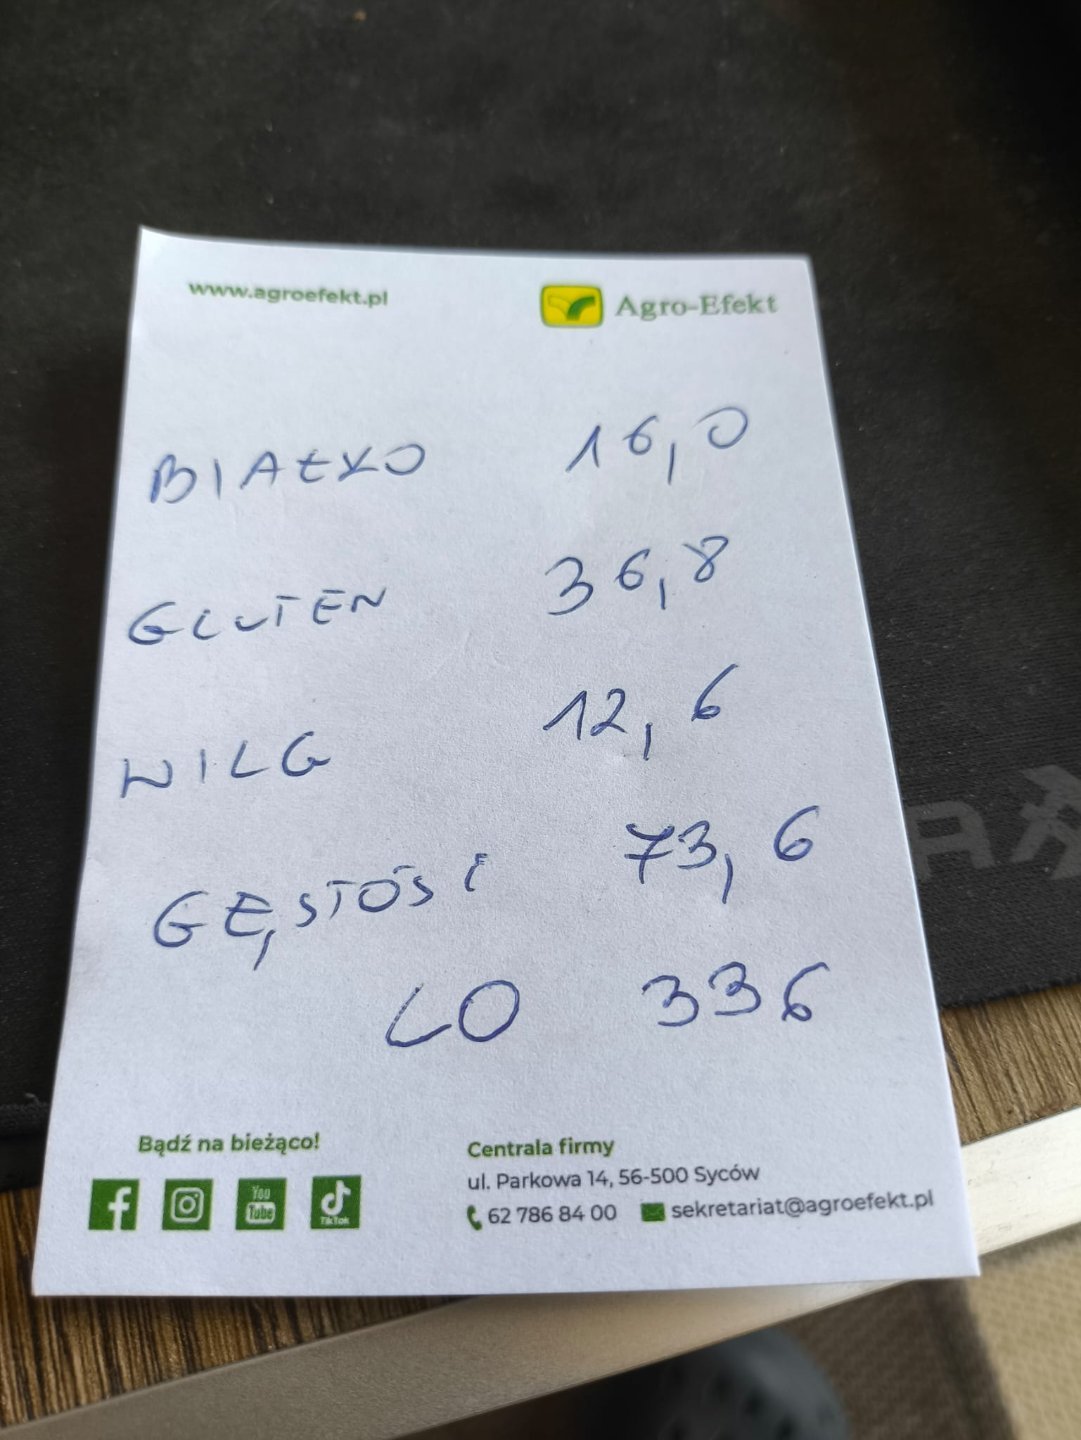 www.agroefekt.pl
Agro-Efekt
BIAŁKO 16,0
GLUTEN 36,8
WILG 12,6
GĘSTOŚĆ 73,6
LO 336
Bądź na bieżąco!
You Tube
TikTok
Centrala firmy
ul. Parkowa 14, 56-500 Syców
62 786 84 00 sekretariat@agroefekt.pl